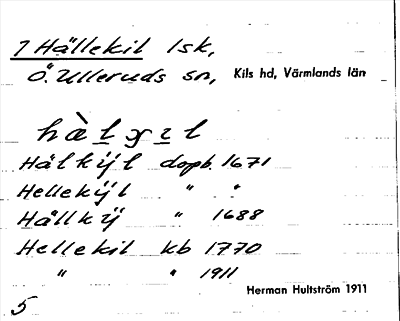 1 Hällekil lsk,
Ö. Ulleruds sn, Kils hd, Värmlands län
hàlɣɩl
Hälkÿl dopb. 1671
Hellekÿl " "
Hällkÿ " 1688
Hellekil kb 1770
" " 1911
Herman Hultström 1911
5